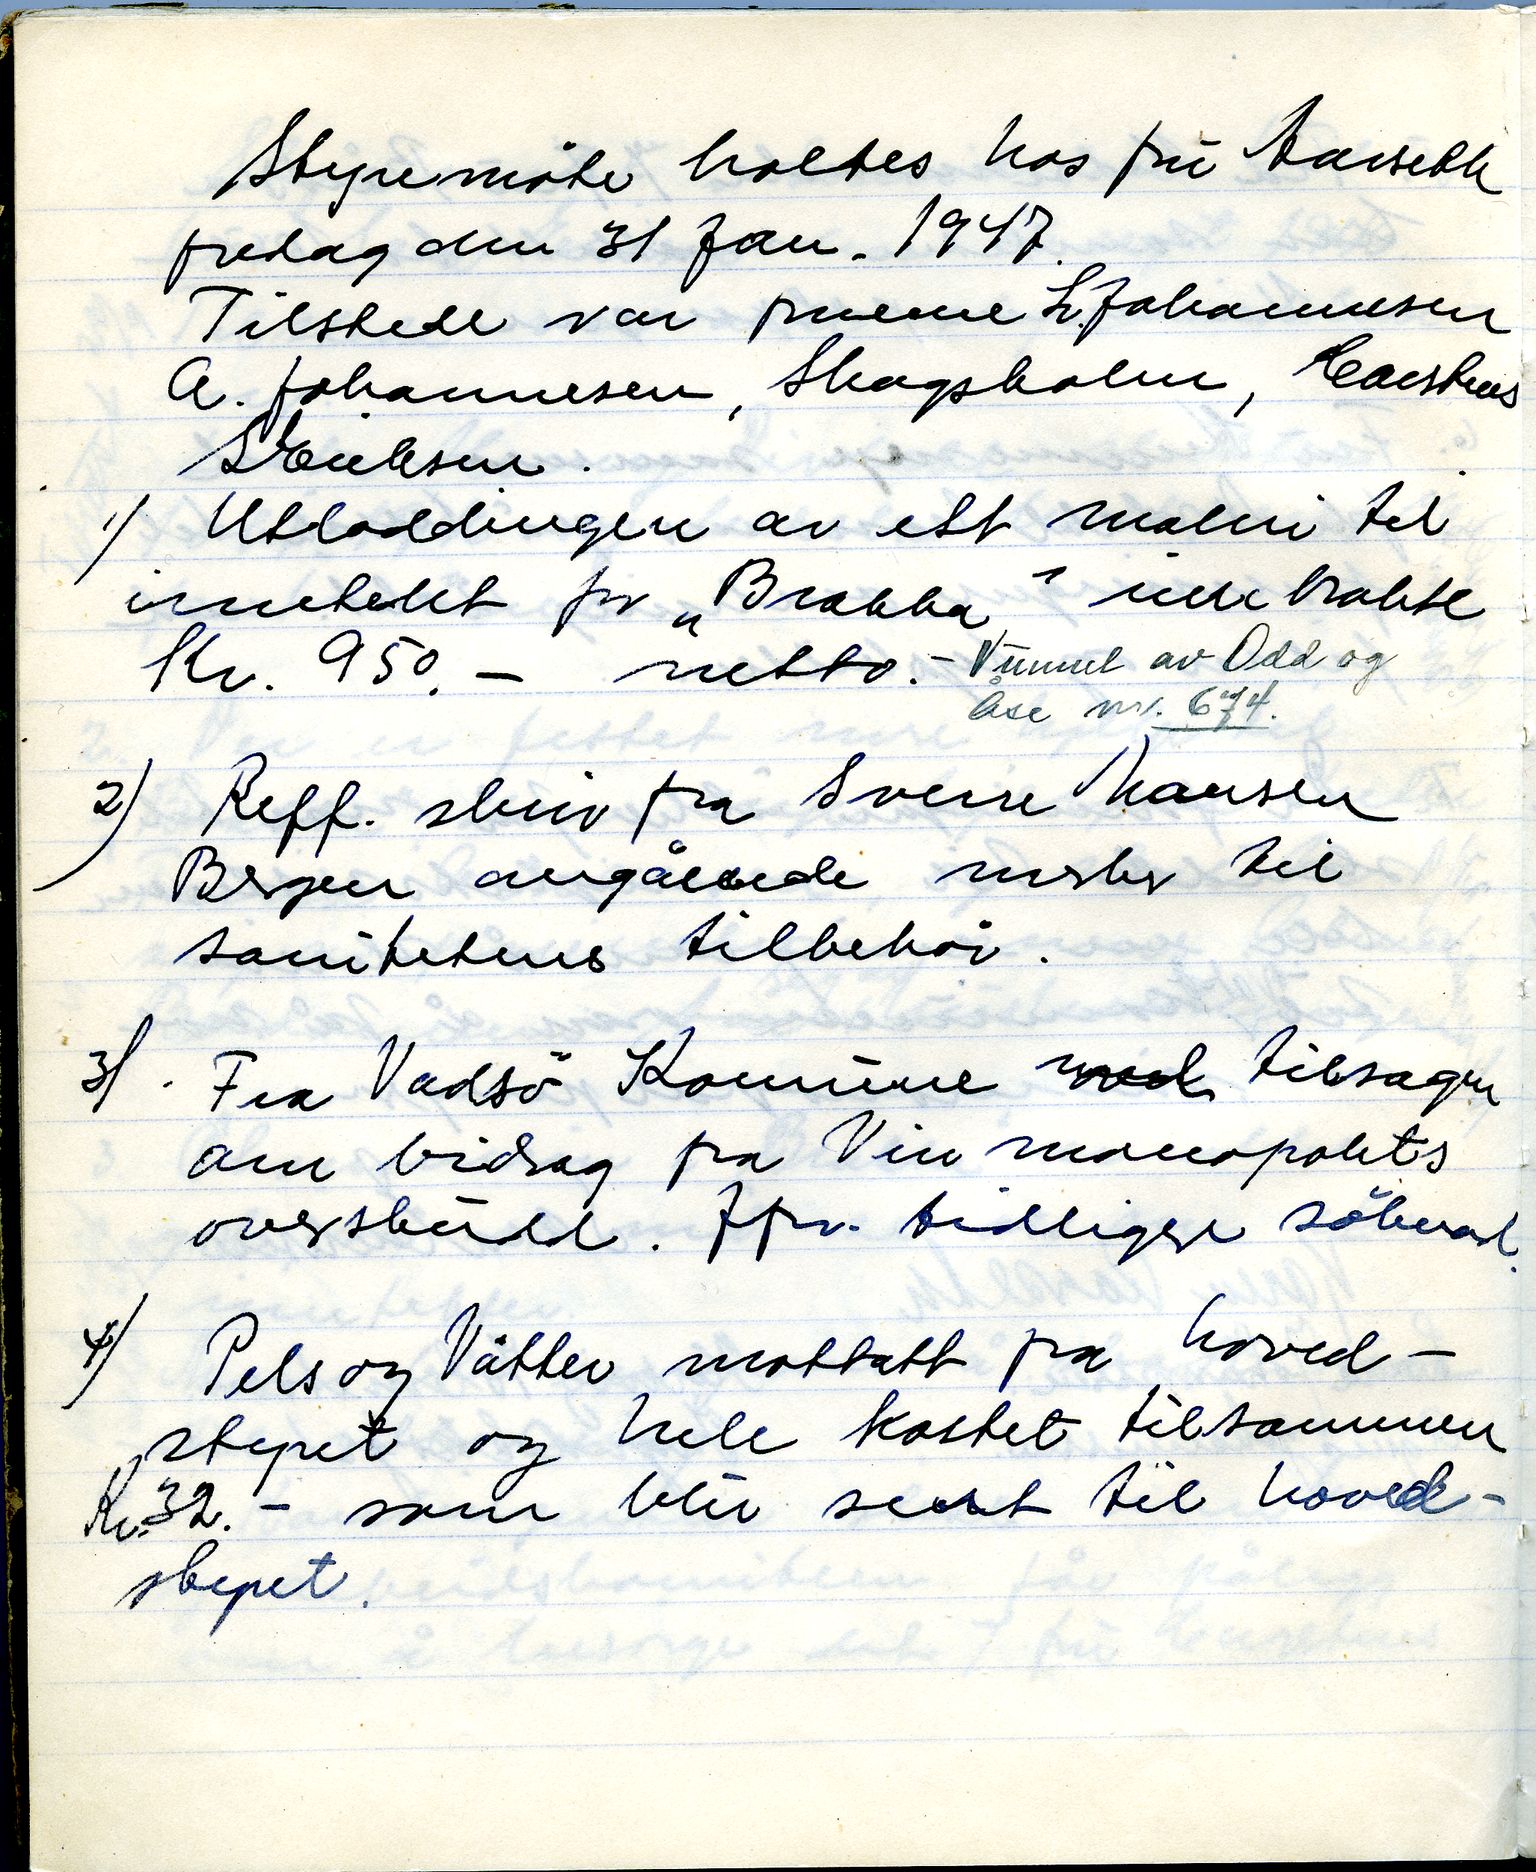 Styremöte holtes hos frü Aarseth
fredag den 31 Jan. 1947.
Tilstede var fruene L. Johannesen
A. Johannesen, Skogsholm, Carstens
Eriksen.
1) Utloddingen av ett maleri til
inntekt for „Brakka” innbrakte
Kr. 950.- netto. - Vunnet av Odd og
Åse nr. 674.
2) Reff. skriv fra Sverre Hansen
Bergen angående merker til
sanitetens tilbehör.
3). Fra Vadsö Kommune tilsagn
om bidrag fra Vinmonopolets
overskudd. Jfr. tidligere söknad.
4) Pels og Våtter mottatt fra hoved-
styret og hele kostet tilsammen
Kr. 32.- som blir sendt til hoved-
styret.